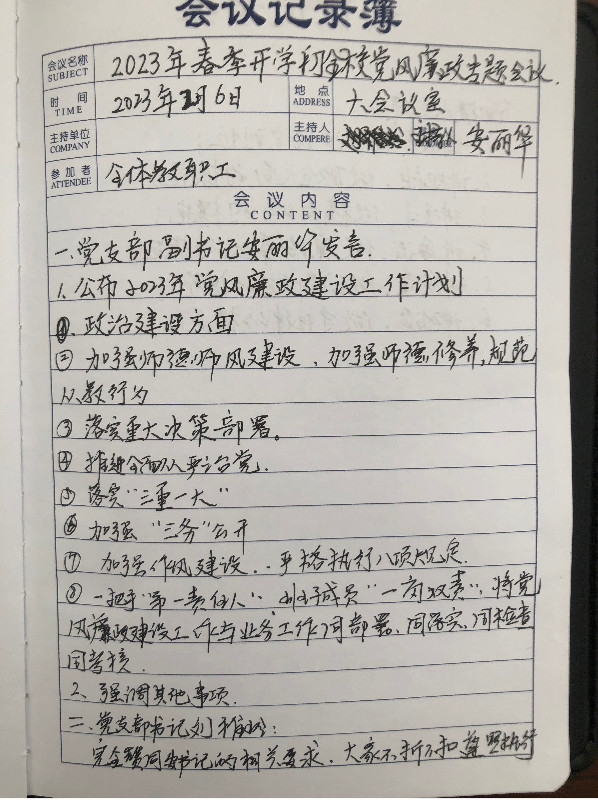 会议记录簿
会议名称 SUBJECT 2023年春季开学初全校党风廉政专题会议.
时间 TIME 2023年2月6日 地点 ADDRESS 大会议室
主持单位 COMPANY 主持人 COMPERE 安丽华
参加者 ATTENDEE 全体教职工
会议内容
CONTENT
一.党支部副书记安丽华发言.
1.公布2023年党风廉政建设工作计划
①.政治建设方面
② 加强师德师风建设、加强师德修养,规范
从教行为
③ 落实重大决策部署。
④ 推进全面从严治党.
⑤ 落实"三重一大"
⑥ 加强"三务"公开
⑦ 加强作风建设..严格执行八项规定.
⑧ 一把手"第一责任人"班子成员"一岗双责",将党
风廉政建设工作与业务工作同部署、同落实、同检查
同考核.
2、强调其他事项.
二.党支部书记刘:
完全赞同安书记的相关要求.大家不折不扣遵照执行